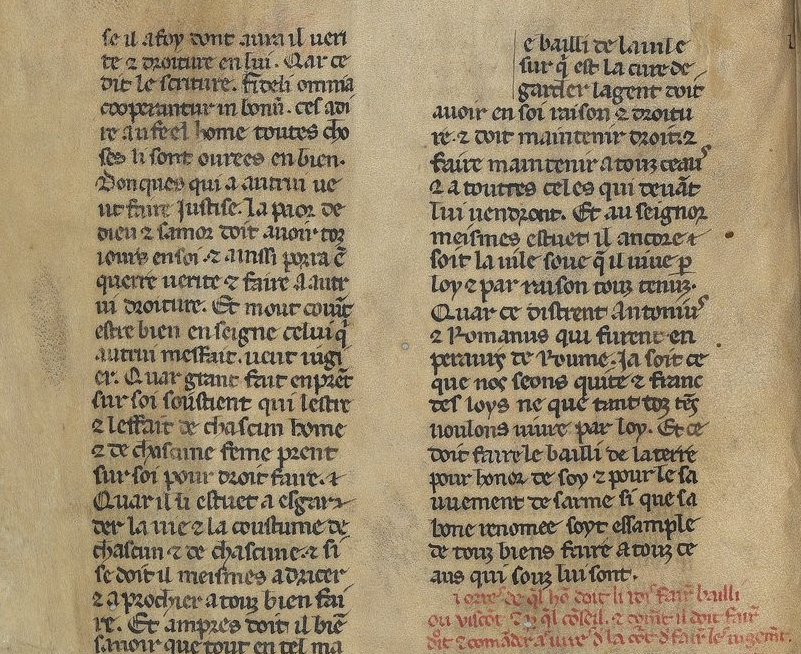 se il a foy dont aura il veri
te ⁊ droiture en lui. Qar ce
dit le scriture. fideli omnia
cooperantur in bonū. ces adi
re au feel home toutes cho
ses li sont ourees en bien.
Donques qui a autrui ve
ut faire Justise. la paor de
dieu ⁊ samor doit auoir toz
iours en soi. ⁊ ainssi porra ē
querre uerite ⁊ faire a autr
ui droiture. Et mout
estre bien enseigne celui q̇
autrui meffait. ueut iugi
er. Quar grant fait enprēt
sur soi soustient qui lestre
⁊ leffait de chascun home
⁊ de chascune feme prent
sur soi pour droit faire.
Quar il li estuet a esgar
der la uie ⁊ la coustume de
chascun ⁊ de chascune. ⁊ si
se doit il meismes adricer
⁊ aprochier a touz bien fai
re. Et ampres doit il biē
sauoir que tout en tel ma
e bailli de la uile
sur q̄ est la cure de
garder la gent doit
auoir en soi raison ⁊ droitu
re. ⁊ doit maintenir droit. ⁊
faire maintenir a touz ceaus
⁊ a toutes celes qui deuāt
lui uendront. Et au seignor
meismes estuet il ancore
soit la uile soue q̄ il uiue ꝑ
loy ⁊ par raison touz tenuz.
Quar ce distrent Antonius
⁊ Romanus qui furent en
peraurs de Roume. Ja soit ce
que nos seons quite ⁊ franc
des loys ne que tant toz tēs
uoulons uiure par loy. Et ce
doit faire le bailli de la terre
pour honor de soy ⁊ pour le sa
uuement de sarme si que sa
bone renomee soyt essample
de touz biens faire a touz ce
aus qui souz lui sont.
de q̄l hō doit li roi fair̄ bailli
ou uiscōt ⁊ q̄l cōseil. ⁊ comt̄ il doit fair̄
⁊ comāder a iure la cort fair̄ le iugemt̄.